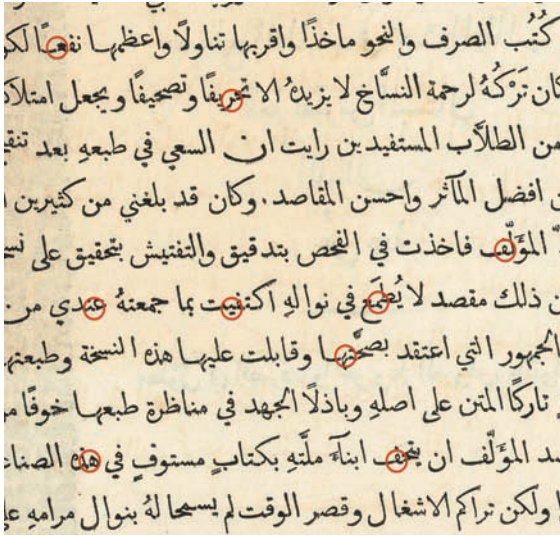 كُتُب الصرف والنحو ماخذًا واقربها تناولًا واعظمها نفعًا لكن
كان تَرْكُهُ لرحمة النسَّاخ لا يزيدهُ الا تحريفًا وتصحيفًا ويجعل
من الطلَّاب المستفيدين رايت ان السعي في طبعهِ بعد
افضل المآثر واحسن المقاصد . وكان قد بلغني من كثيرين
المؤَلّف فاخذت في الفحص بتدقيق والتفتيش بتحقيق على
ذلك مقصد لا يُطمَع في نوالهِ اكتفيت بما جمعتهُ عندي من
الجمهور التي اعتقد بصحَّتها وقابلت عليها هذه النسخة وطبعتها
تاركًا المتن على اصلهِ وباذلًا الجهد في مناظرة طبعها خوفًا
المؤَلّف ان يتحف ابنآءَ ملَّتهِ بكتابٍ مستوفٍ في هذه
ولكن تراكم الاشغال وقصر الوقت لم يسمحا لهُ بنوال مرامهِ